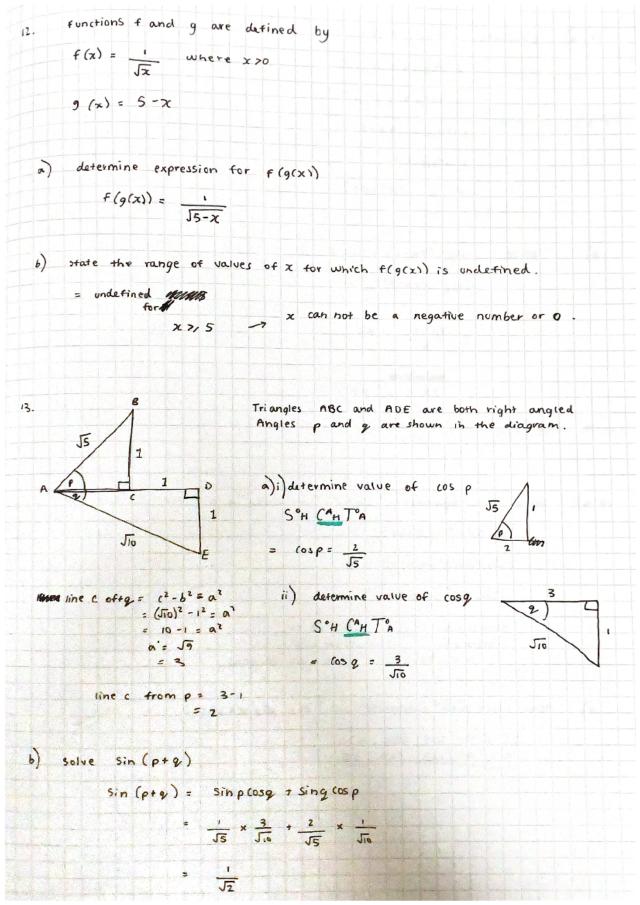 12. functions f and g are defined by
f(x) = 1/√x where x>0
g(x) = 5-x
a) determine expression for f(g(x))
f(g(x)) = 1/√5-x
b) state the range of values of x for which f(g(x)) is undefined.
= undefined
for
x ⩾ 5 → x can not be a negative number or 0.
13.
B
√5
1
A
p
q
C
1
D
1
√10
E
Triangles ABC and ADE are both right angled
Angles p and q are shown in the diagram.
a)i) determine value of cos p
S°H CᴬH T°A
= cos p = 2/√5
√5
1
p
2
line c of q = c² - b² = a²
= (√10)² - 1² = a²
= 10 - 1 = a²
a = √9
= 3
line c from p = 3-1
= 2
ii) determine value of cosq
S°H CᴬH T°A
= cos q = 3/√10
3
q
1
√10
b) solve sin (p+q)
sin (p+q) = sinp cosq + sinq cosp
= 1/√5 × 3/√10 + 2/√5 × 1/√10
= 1/√2